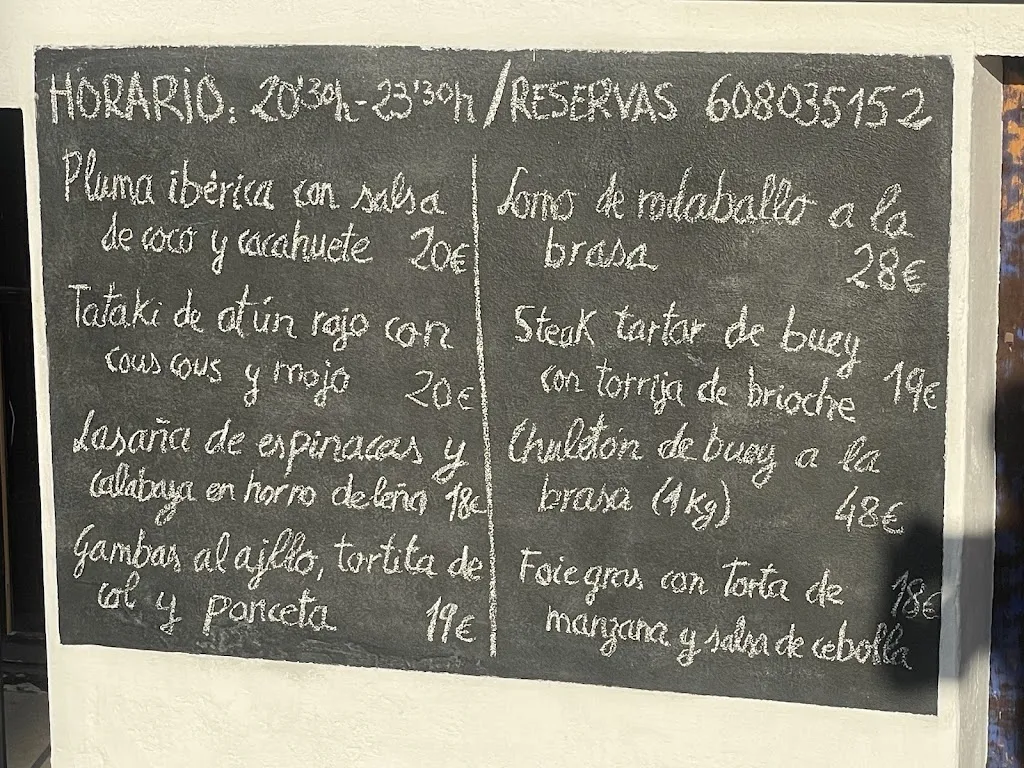 HORARIO: 20'30h-23'30h/RESERVAS 608035152
Pluma ibérica con salsa
de coco y cacahuete 20€
Tataki de atún rojo con
couscous y mojo 20€
Lasaña de espinacas y
calabaza en horno de leña 18€
Gambas al ajillo, tortita de
col y panceta 19€
Lomo de rodaballo a la
brasa 28€
Steak tartar de buey
con torrija de brioche 19€
Chuletón de buey a la
brasa (1Kg) 48€
Foie gras con Torta de 18€
manzana y salsa de cebolla